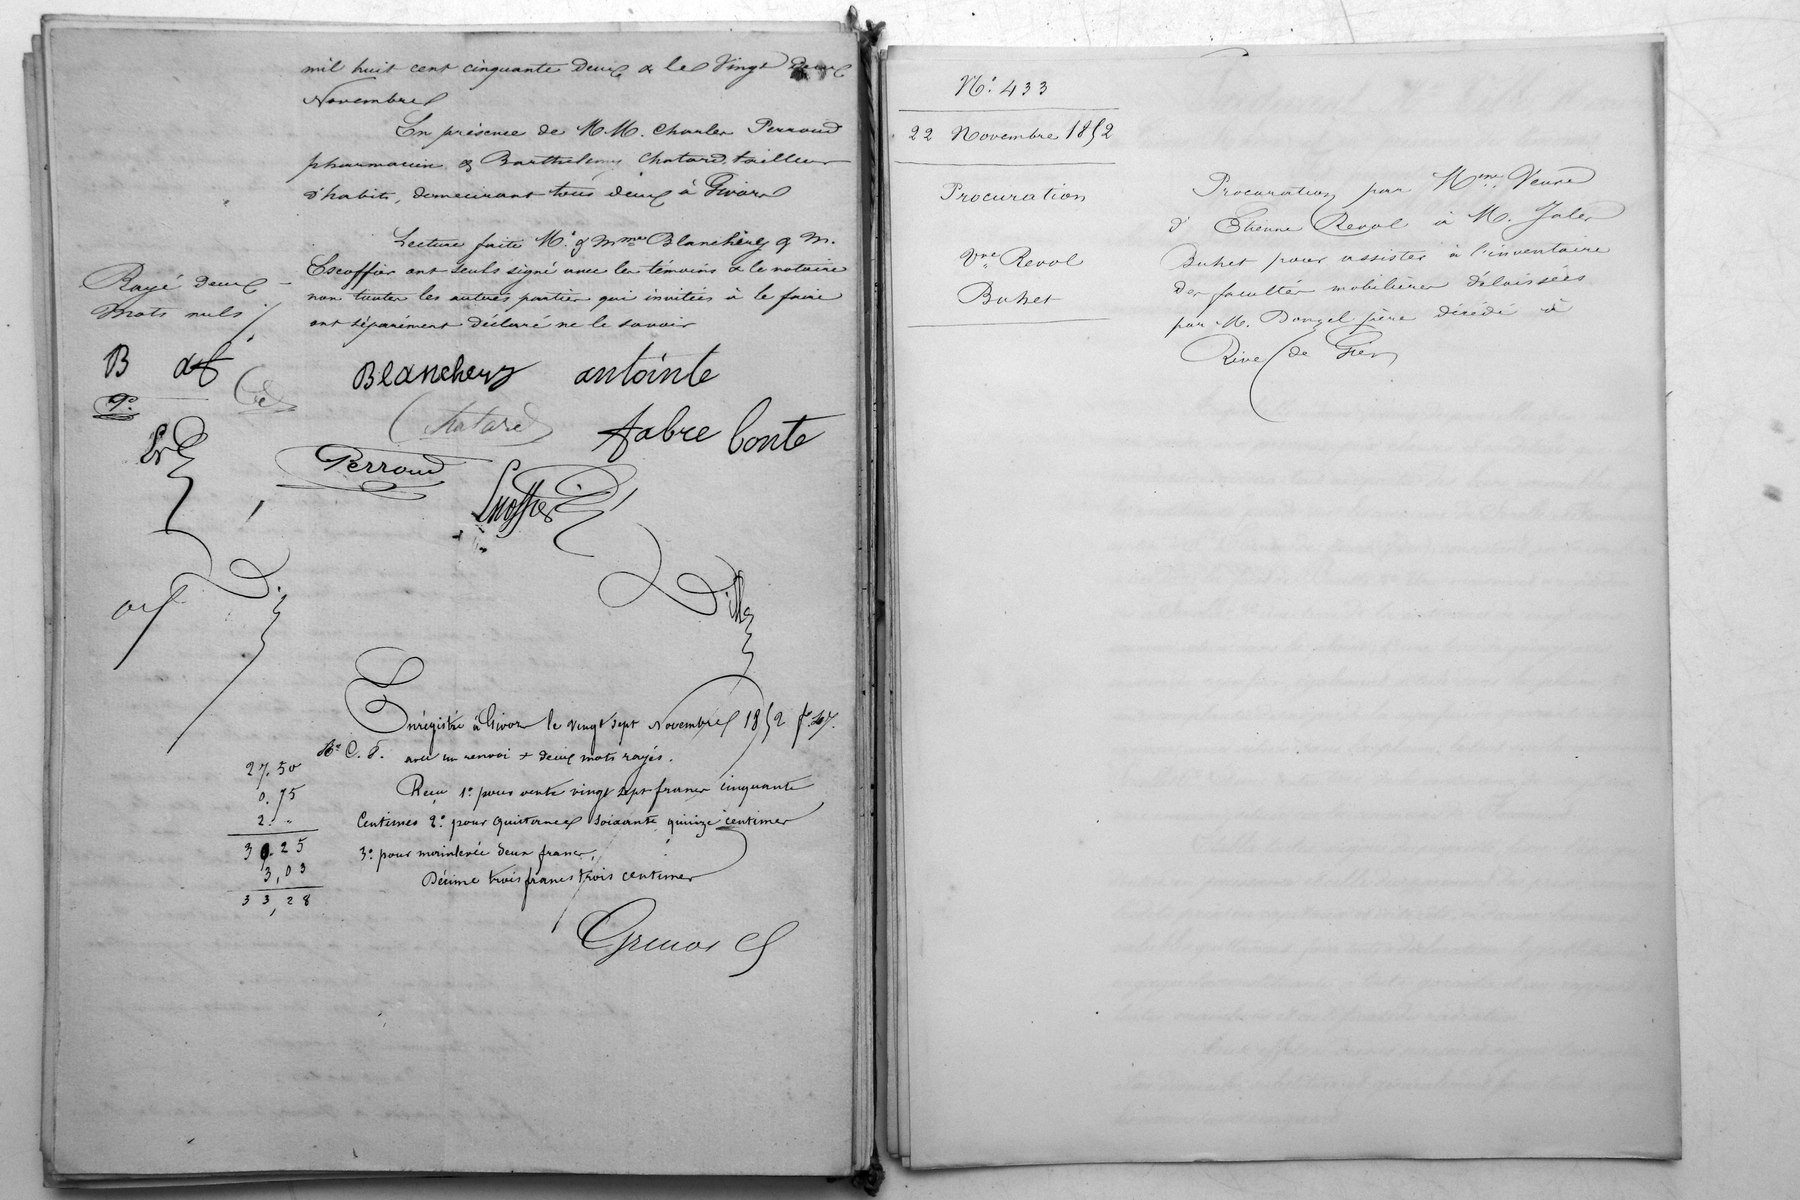 mil huit cent cinquante deux & le Vingt Deux
Novembre
En présence de M.M. Charles Perroud
pharmacien & Barthélemy Chatard tailleur
d'habits, demeurant tous deux à Givors
Lecture faite Mr & Mme Blanchery & M.
Escoffier ont seuls signé avec les témoins & le notaire
non toutes les autres parties qui invitées à le faire
ont séparément déclaré ne le savoir
Rayé deux
mots nuls
B af
Blanchery antointe
Chatard
fabre Conte
P.
Perroud
Escoffier
D.
Enrégistré à Givors le vingt sept Novembre 1852 fo 47.
Ro C. 5. avec un renvoi & deux mots rayés.
27.50
Reçu 1o pour vente vingt sept francs cinquante
0.75
Centimes 2o pour quittance soixante quinze centimes
2. "
3o pour mainlevée deux francs,
30.25
Décime trois francs trois centimes
3,03
33,28
No. 433
22 Novembre 1852
Procuration
Vve Revol
Buhet
Procuration par Mme Veuve
d' Etienne Revol à M. Jules
Buhet pour assister à l'inventaire
des facultés mobilières délaissées
par M. Donzel père décédé à
Rive de Gier